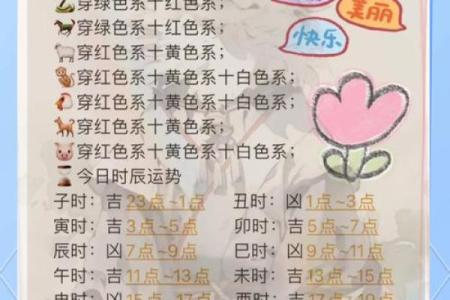 🐍穿绿色系十红色系；
🐎穿绿色系十红色系；
🐑穿红色系十黄色系；
🐒穿红色系十黄色系十白色系；
🐔穿红色系十黄色系十白色系；
🐕穿红色系十黄色系；
🐷穿红色系十黄色系十白色系；
⏳今日时辰运势
子时：吉23点~1点 丑时：凶1点~3点
寅时：吉3点~5点 卯时：吉5点~7点
辰时：凶7点~9点 巳时：凶9点~11点
午时：吉11点~13点 未时：吉13点~15点
申时：凶15点~17点 酉时：吉
美丽
快乐